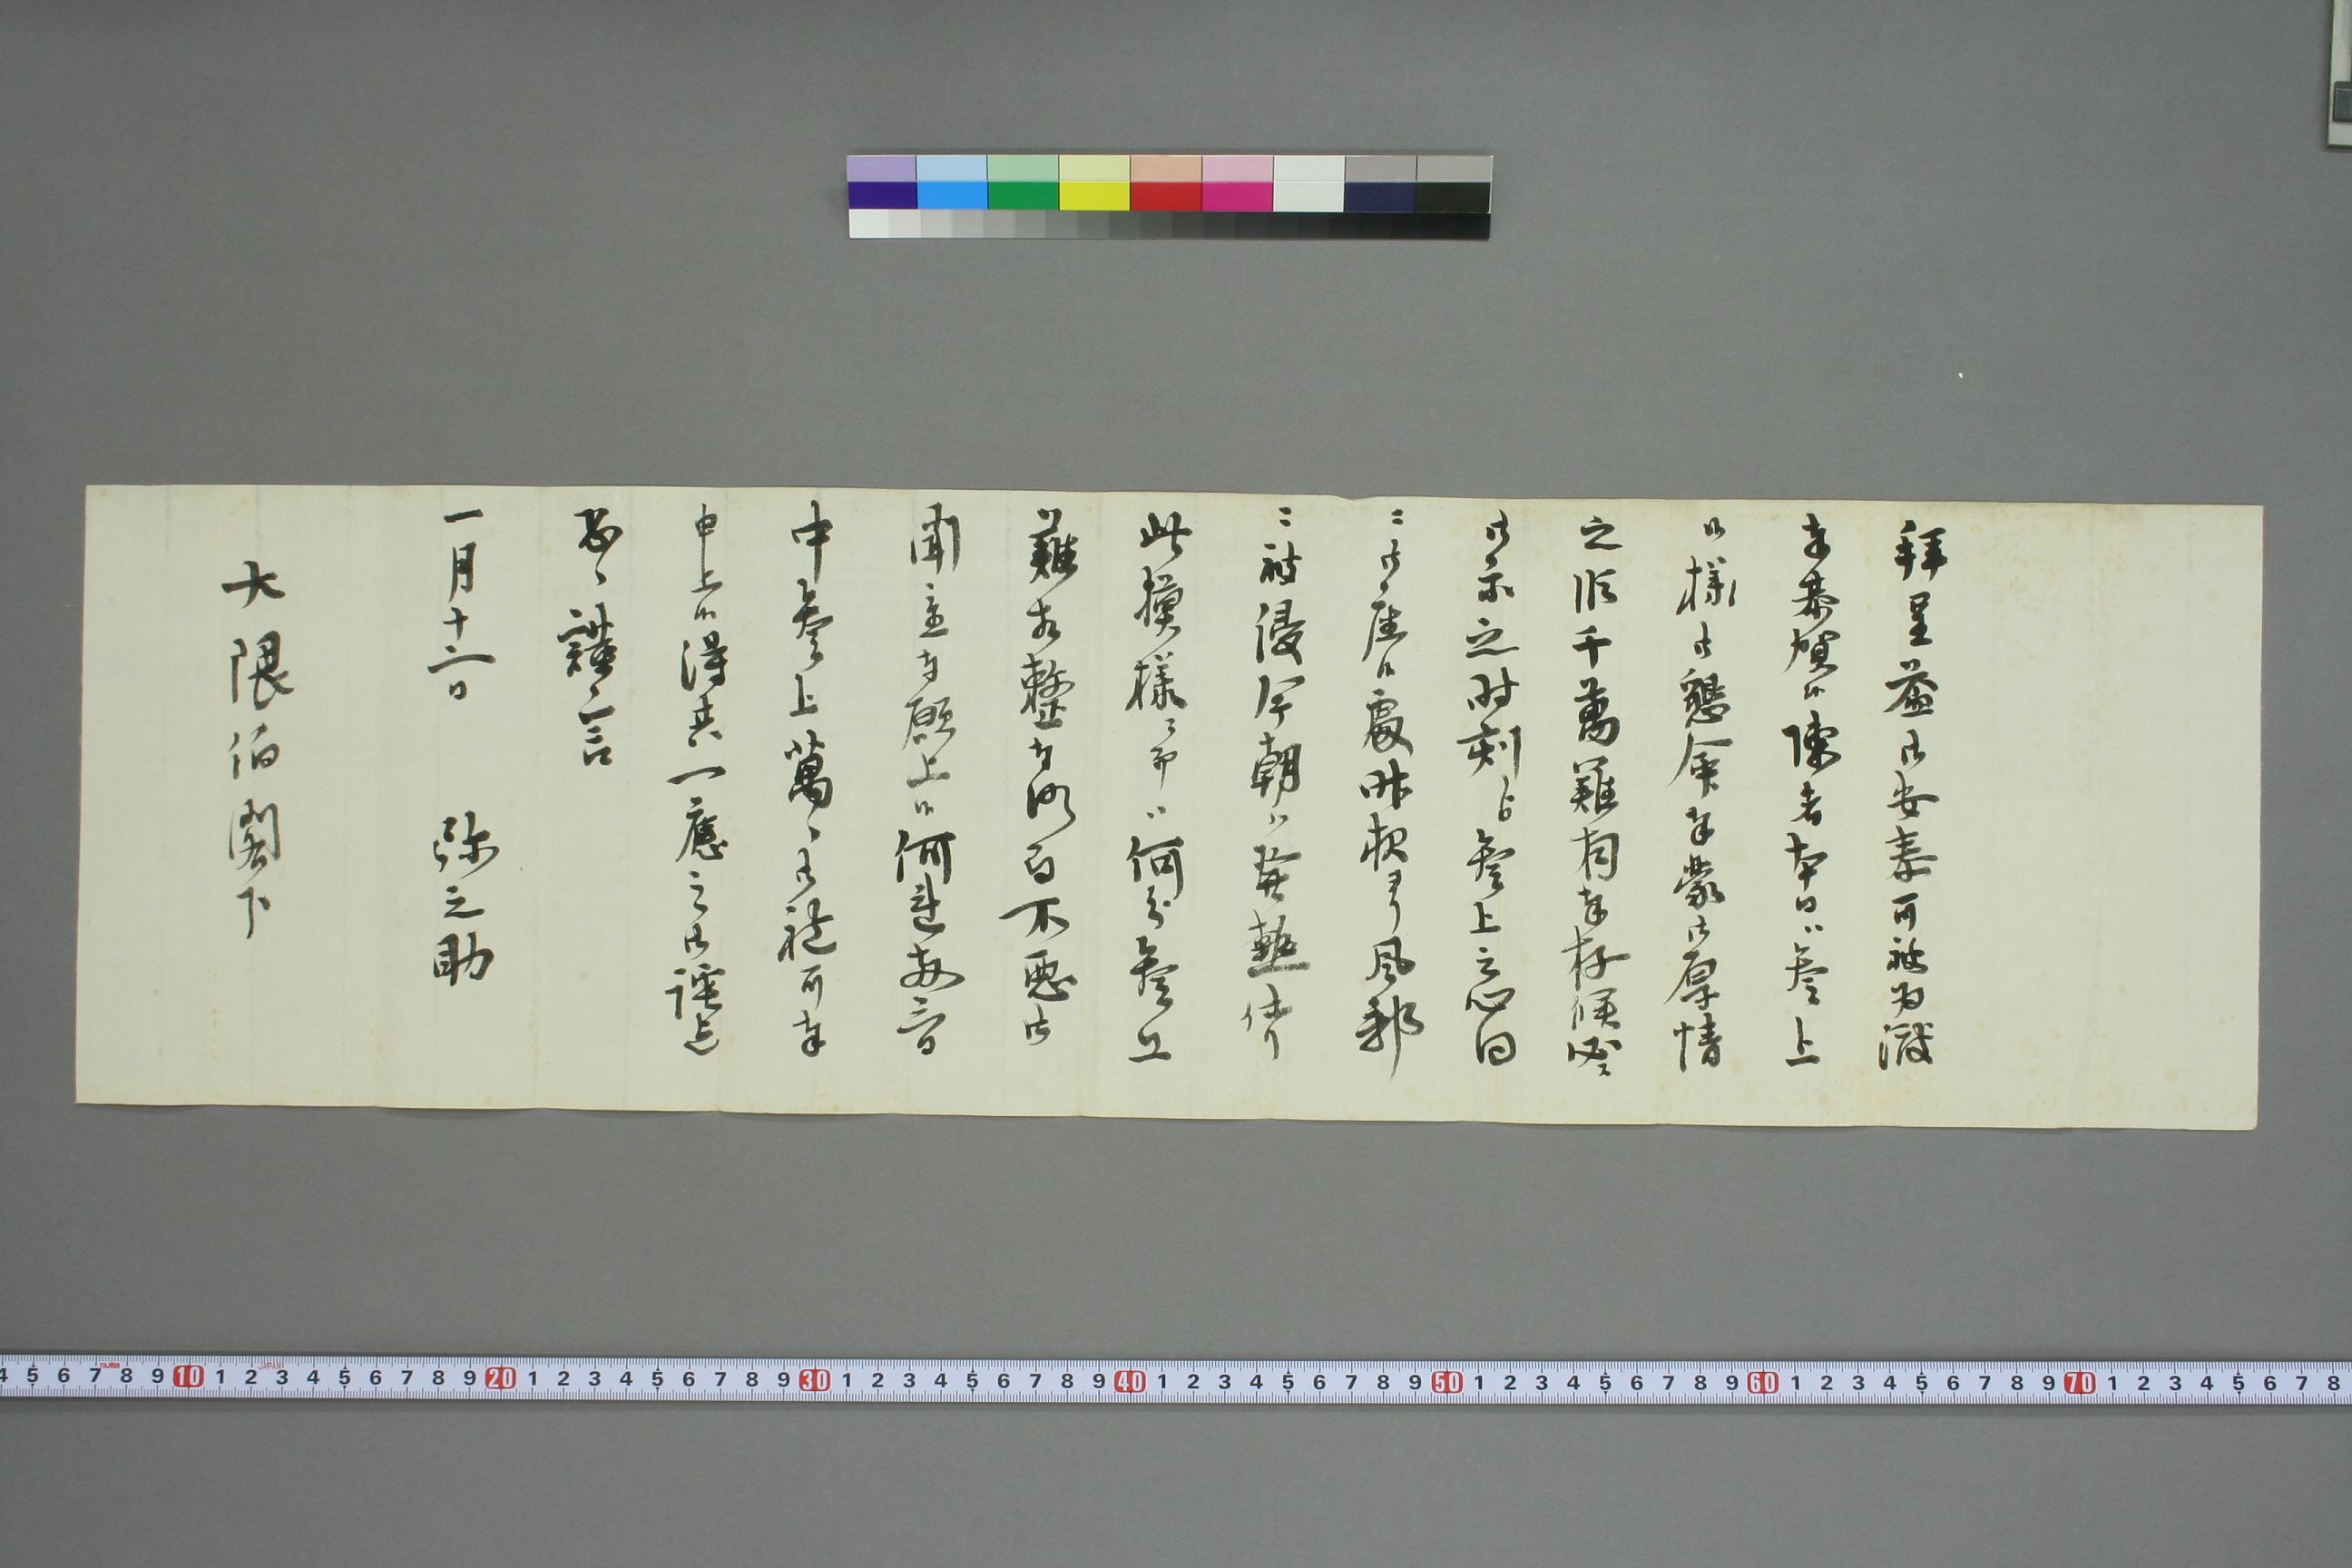 拝呈益御安泰可被為渡
奉恭賀候陳者本日ハ参上
候様御懇命奉蒙御厚情
之段千万難有奉存候必ス
御示之時刻ニ参上之心得
ニ御座候処昨夜ヨリ風邪
ニ被侵今朝ハ発熱仕リ
此模様ニ而ハ何分参上
難出来整
聞立奉願上候何連両三日
中参上萬々御礼可奉
申上候得共一應之御
匆々謹言
一月十二日 弥之助
大隈伯閣下
4 5 6 7 8 9 10 1 2 3 4 5 6 7 8 9 20 1 2 3 4 5 6 7 8 9 30 1 2 3 4 5 6 7 8 9 40 1 2 3 4 5 6 7 8 9 50 1 2 3 4 5 6 7 8 9 60 1 2 3 4 5 6 7 8 9 70 1 2 3 4 5 6 7 8